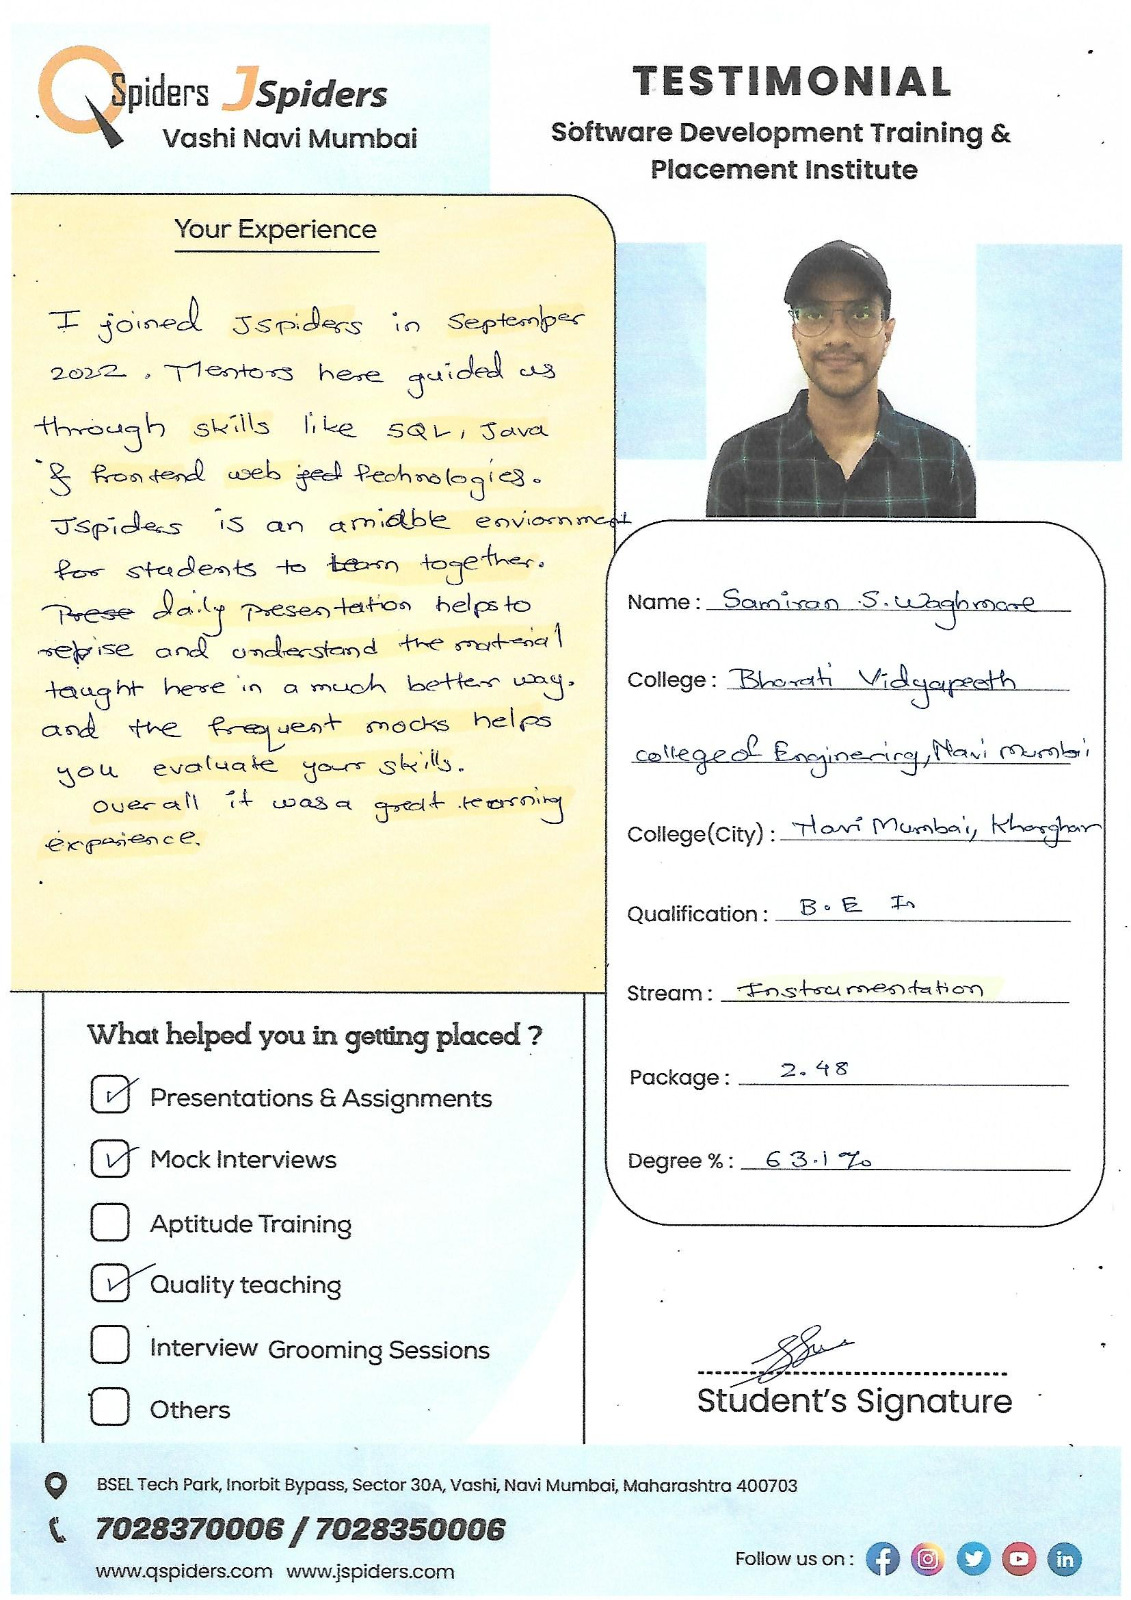 QSpiders JSpiders
Vashi Navi Mumbai
TESTIMONIAL
Software Development Training &
Placement Institute
Your Experience
I joined JSpiders in September
2022. Mentors here guided us
through skills like SQL, Java
& frontend web technologies.
JSpiders is an amiable enviornment
for students to learn together.
daily presentation helps to
revise and understand the material
taught here in a much better way.
and the frequent mocks helps
you evaluate your skills.
overall it was a great learning
experience.
Name: Samiran S. Waghmare
College: Bharati Vidyapeeth
college of Enginering, Navi mumbai
College(City): Navi Mumbai, Kharghar
Qualification: B.E In
Stream: Instrumentation
Package: 2.48
Degree %: 63.1%
What helped you in getting placed ?
Presentations & Assignments
Mock Interviews
Aptitude Training
Quality teaching
Interview Grooming Sessions
Others
Student's Signature
BSEL Tech Park, Inorbit Bypass, Sector 30A, Vashi, Navi Mumbai, Maharashtra 400703
7028370006 / 7028350006
www.qspiders.com www.jspiders.com
Follow us on :